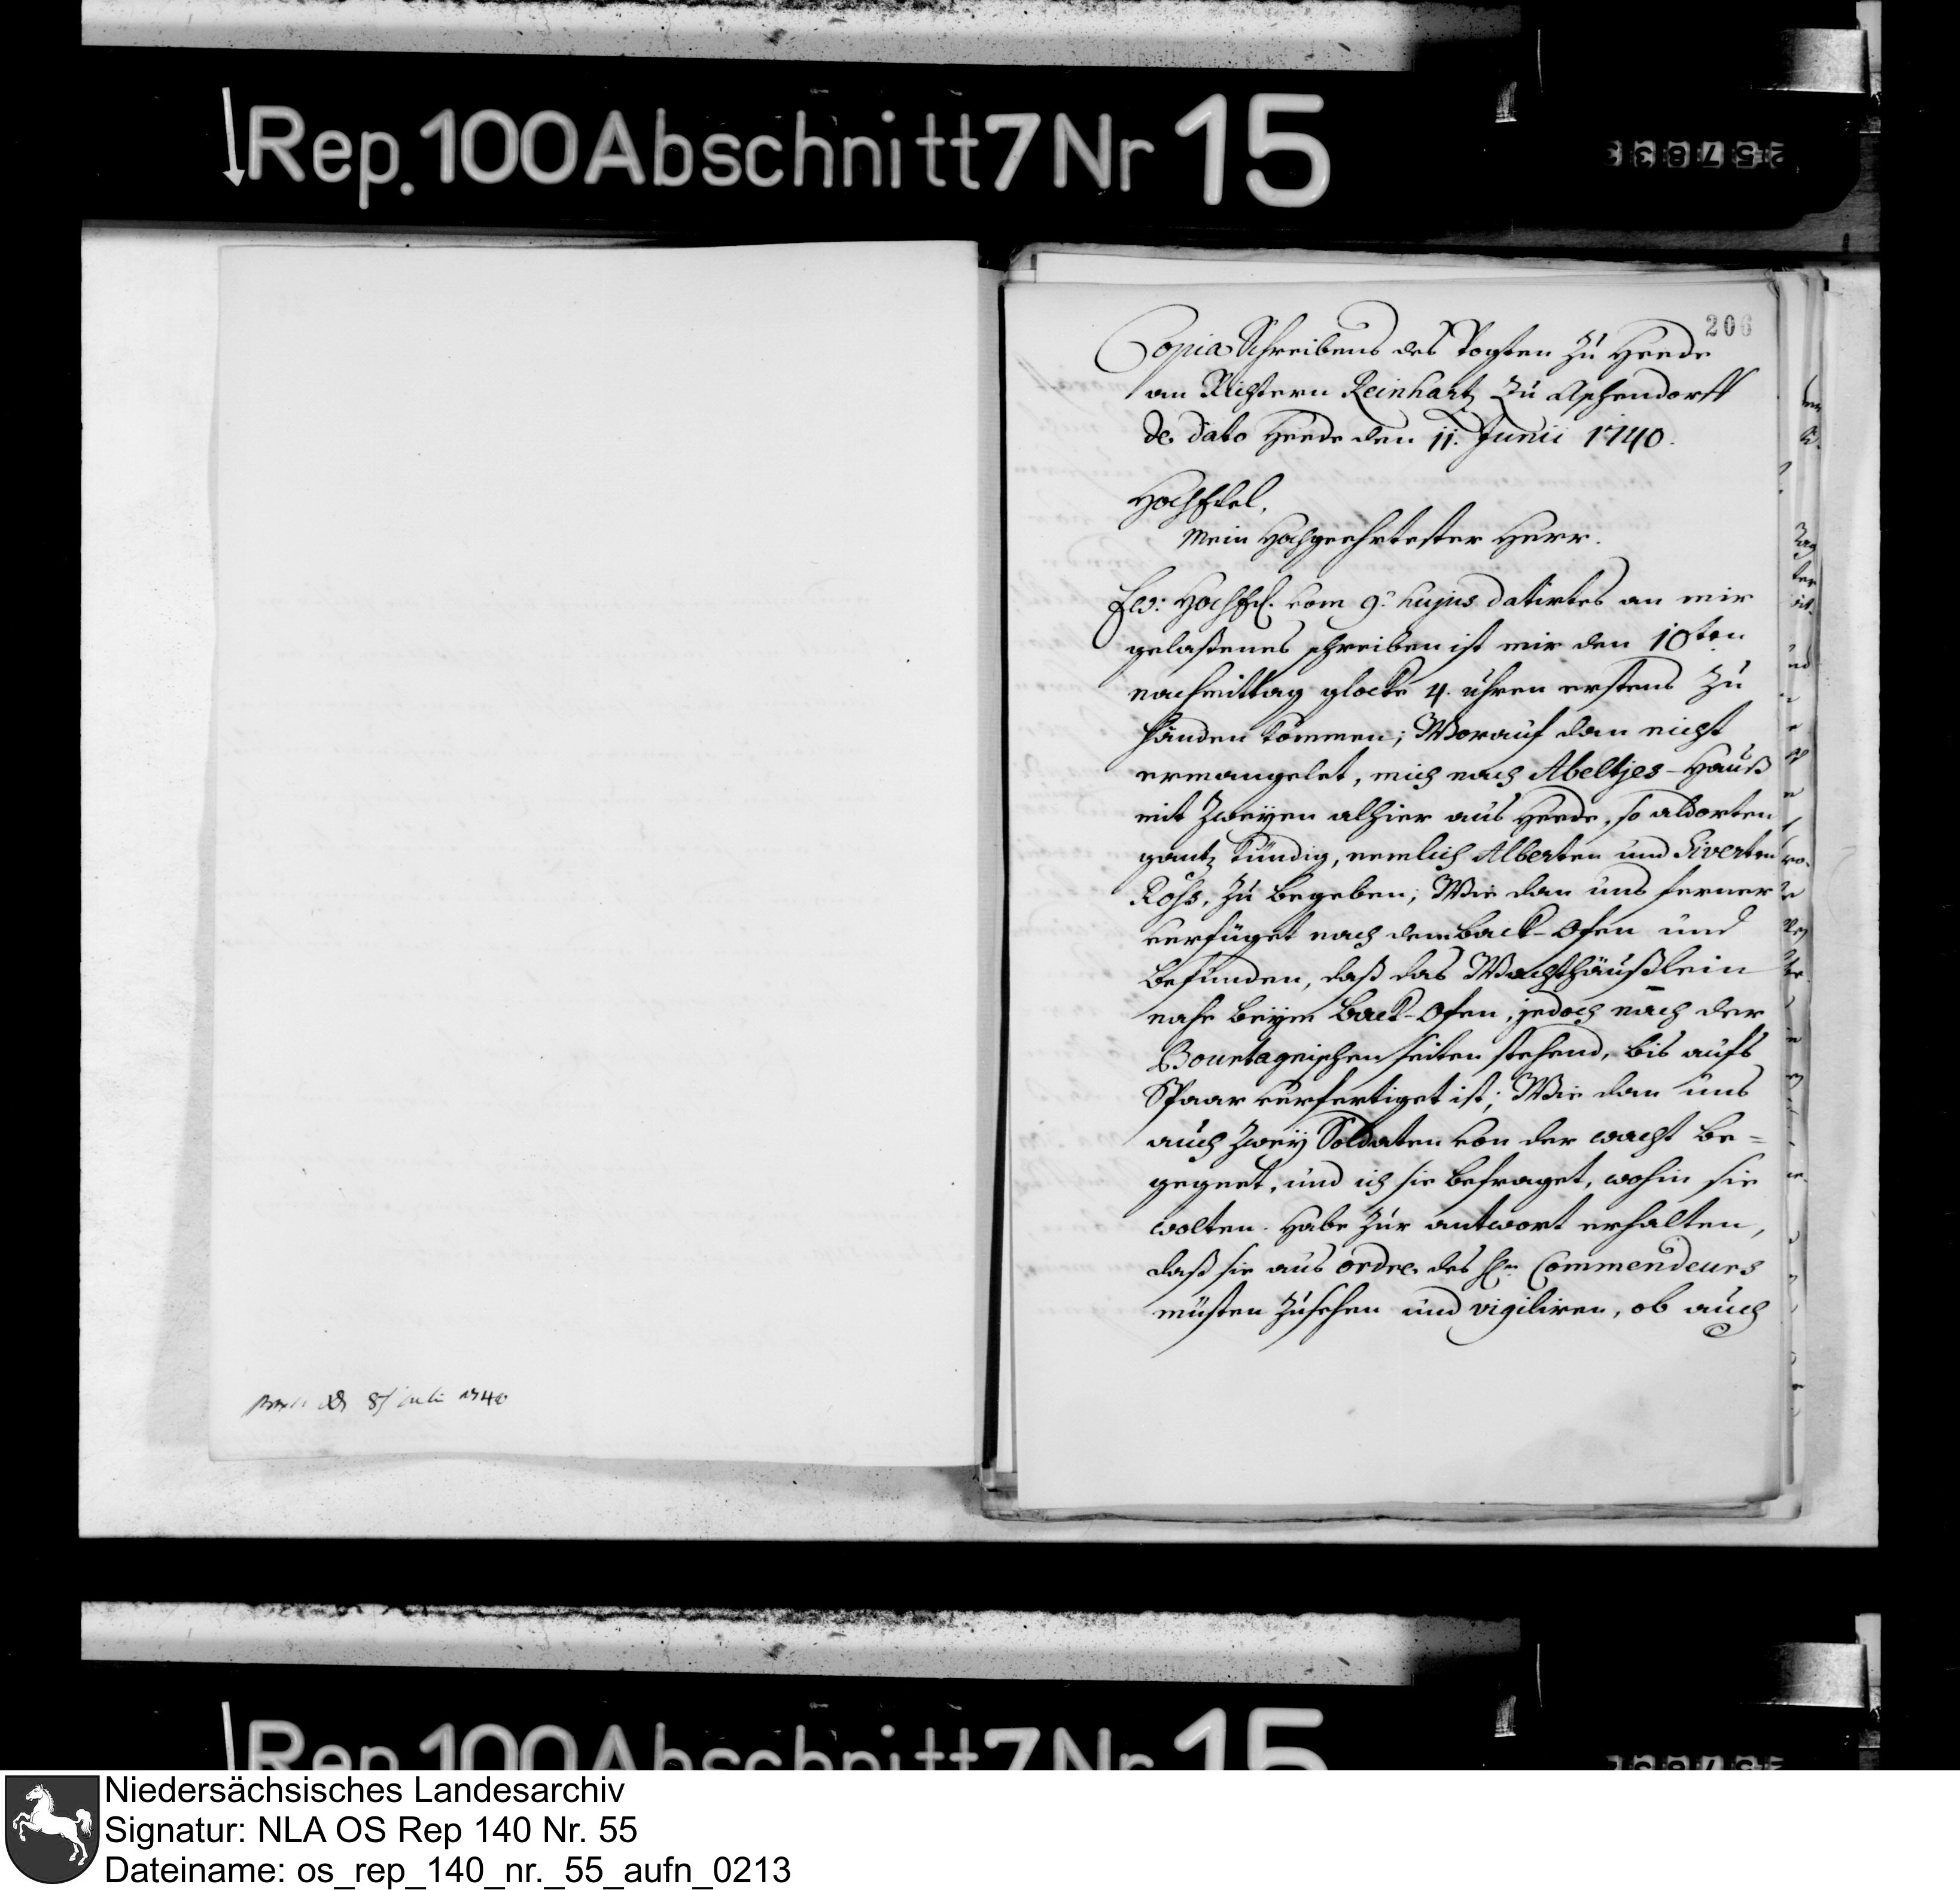 Rep. 100 Abschnitt 7 Nr 15
206
Copia Schreibens des Vogten zu Heede
an Richtern Reinhartz zu Aschendorff
de dato Heede den 11. Junii 1740.
HochEdel,
Mein Hochgeehrtester Herr.
Ew: HochEd. vom 9. hujus datirtes an mir
gelaßenes schreiben ist mir den 10ten
nachmittag glocke 4. uhren erstens zu
händen kommen; Worauf dan nicht
ermangelet, mich nach Abeltjes-Hauß
mit zweyen alhier aus Heede, so aldorten
gantz kündig, nemlich Alberten und Siverten
zu begeben; Wie dan uns ferner
verfüget nach dem back-Ofen und
befunden, daß das Wachthäußlein
nahe beym back-Ofen, jedoch nach der
Bourtagnischen seiten stehend, bis aufs
Spaar verfertiget ist; Wie dan uns
auch zwey Soldaten von der wacht be=
gegnet, und ich sie befraget, wohin sie
wolten. Habe zur antwort erhalten,
daß sie aus ordre des Hn Commendeurs
müsten zusehen und vigiliren, ob auch
8 Juli 1740
Rep. 100 Abschnitt 7 Nr 15
Niedersächsisches Landesarchiv
Signatur: NLA OS Rep 140 Nr. 55
Dateiname: os_rep_140_nr._55_aufn_0213